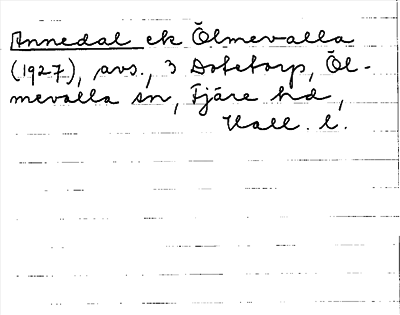 Annedal ek Ölmevalla
(1927), avs., 3 Dotetorp, Öl-
mevalla sn, Fjäre hd,
Hall. l.